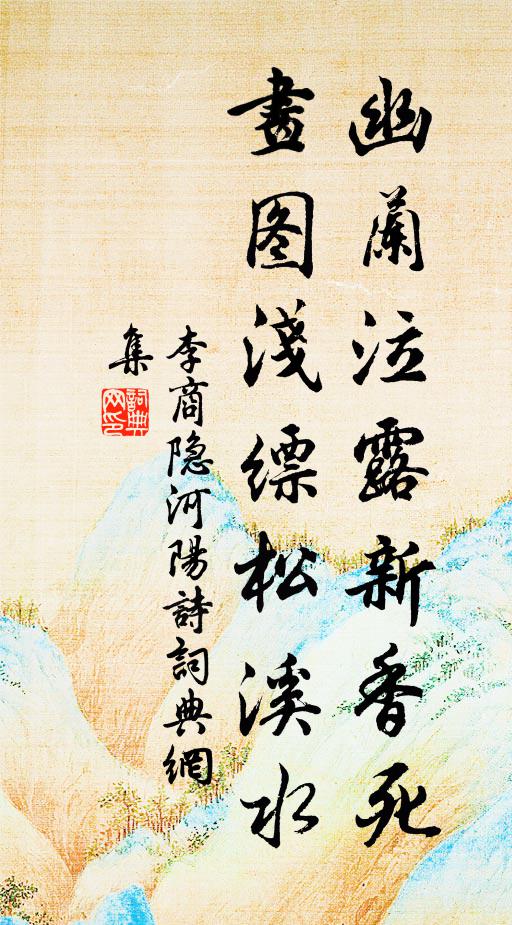 幽蘭泣露新香死
畫图淺縹松溪水
李商隐河陽詩詞典網
集
詞典
网印